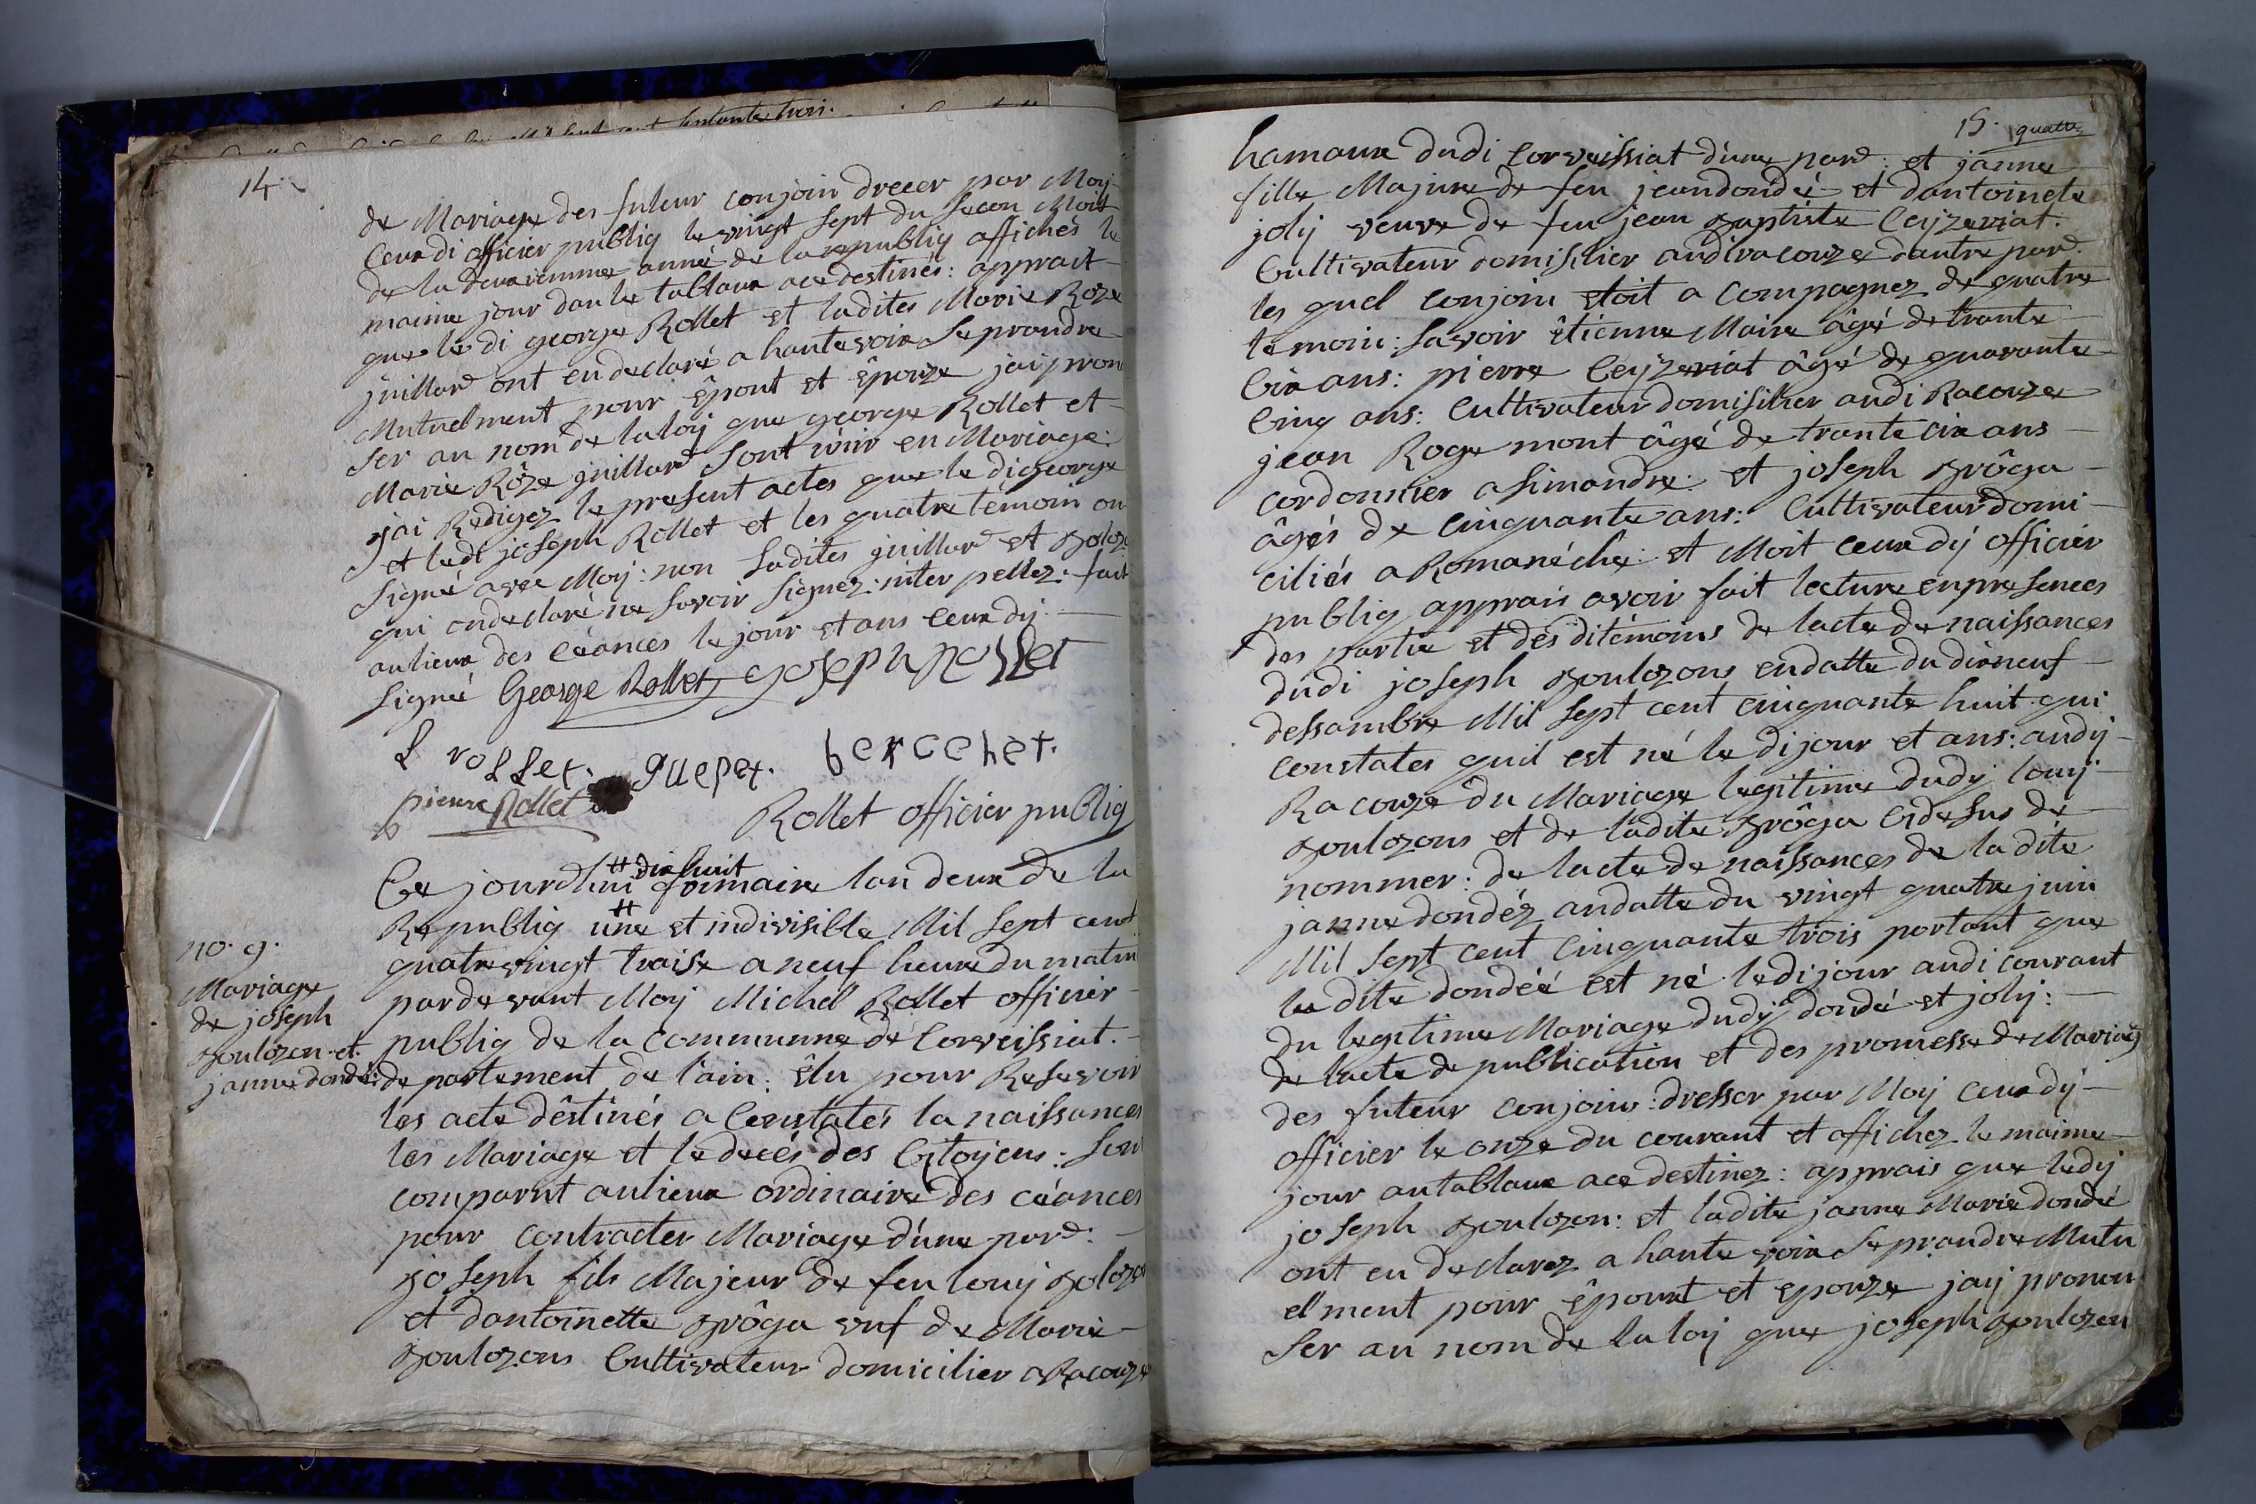 14.
de Mariage des futeur conjoin drecer par Moij
ceux di officier publiq le vingt sept du secon Moit
de la deuxiemme anné de la republiq affichés le
maime jour dan le tablaux ace destinés: apprait
que le di george Rollet et ladites Marie Roze
juillard ont en declaré a hautevoix se prandre
Mutuelment pour êpout et êpouze jai pron
ser au nom de la loij que george Rollet et
Marie Rôze juillard sont unir en Mariage:
jai Redigez le present actes que le di george
et ledi joseph Rollet et les quatre têmoin on
signé avec Moij: non ladites juillard et goloz
qui on declaré ne savoir signez: inter pellez: fait
aulieux des céances le jour et ans ceux dij.
signé George Rollet joseph rollet
l rollet. guepet. bercehet.
pierre Rollet
Rollet officier publiq
dix huit
Ce jourdhui frimaire lan deux de la
Republiq une et indivisible Mil sept cent
quatre vingt traise a neuf heure du matin
pardevant Moij Michel Rollet officier
publiq de la communne de Corveissiat.
no. 9.
Mariage
de joseph
goulozon et
janne dondé:
departement de l'ain: êlu pour Resevoir
les acte dêstinés a Constatés la naissances
les Mariage et le decés des Citoijens: son
comparut aulieux ordinaire des céances
pour contracter Mariage d'une pard:
joseph fils Majeur de feu louij golozon
et dantoinette grôga vuf de Marie
goulozons Cultivateur domicilier a Racouze
15. quatre
hamaux dudi Corveissiat d'une pard: et janne
fille Majure de feu jeandondé et dantoinete
jolij veuve de feu jean Baptiste Ceijzeriat.
Cultivateur domisilier audi racouze dautre pard.
les quel conjoin etoit a compagnez de quatre
temoin: savoir êtienne Maire âgé de trante
Cix ans: pierre Ceijzeriat âgé de quarante
Cinq ans: Cultivateur domisilier audi Racouze
jean Rogemont âgé de trante cix ans
cordonnier a simandre: et joseph grôga
âgés de cinquante ans: Cultivateur domi-
ciliés a Romanéche: et Moit ceux dij officier
publiq apprais avoir fait lecture en presences
des partie et des ditémoins de lacte de naissances
dudi joseph goulozons endatte du dixneuf
dessambre Mil sept cent cinquante huit qui
constates quil est né le dijour et ans: audij
Racouze du Mariage legitime dudij louij
goulozons et de ladite grôga cidesus de
nommer: de lacte de naissances de la dite
janne dondéz andatte du vingt quatre juin
Mil sept cent Cinquante trois portant que
la dite dondéé est né le dijour audi courant
du legitime Mariage dudij dondé et jolij:
de lacte de publication et des promesse de Mariag
des futeur conjoins: dresser par Moij ceux dij
officier le onze du courant et affichez le maime
jour autablaux ace destinez: apprais que ledij
joseph goulozon: et ladite janne Marie dondé
ont en declarez a haute voix se prandre Mutu
elment pour êpoux et epouze jaij pronon
ser au nom de la loij que joseph goulozon